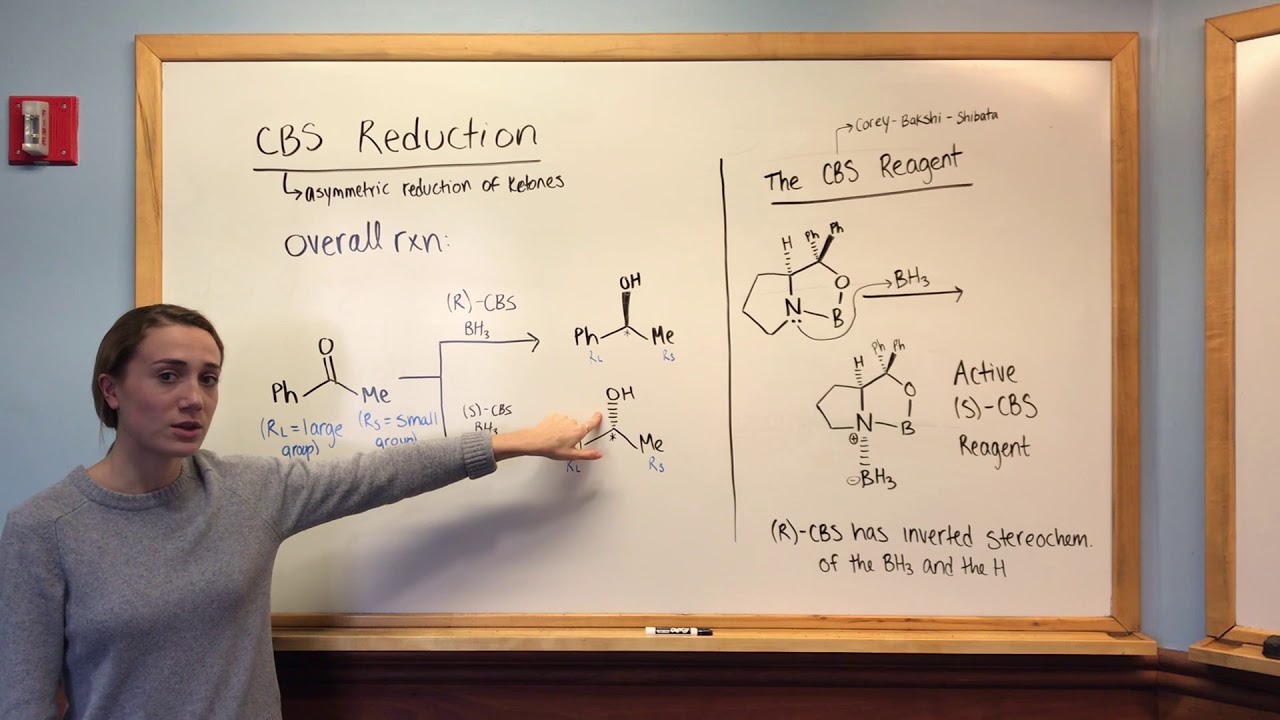 CBS Reduction
↳asymmetric reduction of ketones
overall rxn:
O
Ph
Me
(R_L = large
group)
(R_S = small
group)
(R)-CBS
BH₃
(S)-CBS
BH₃
OH
Ph
*
Me
R_L
R_S
OH
*
Me
R_L
R_S
→Corey-Bakshi-Shibata
The CBS Reagent
H
Ph
Ph
O
N
B
BH₃
Ph
Ph
H
O
N
⊕
B
⊖BH₃
Active
(S)-CBS
Reagent
(R)-CBS has inverted stereochem.
of the BH₃ and the H